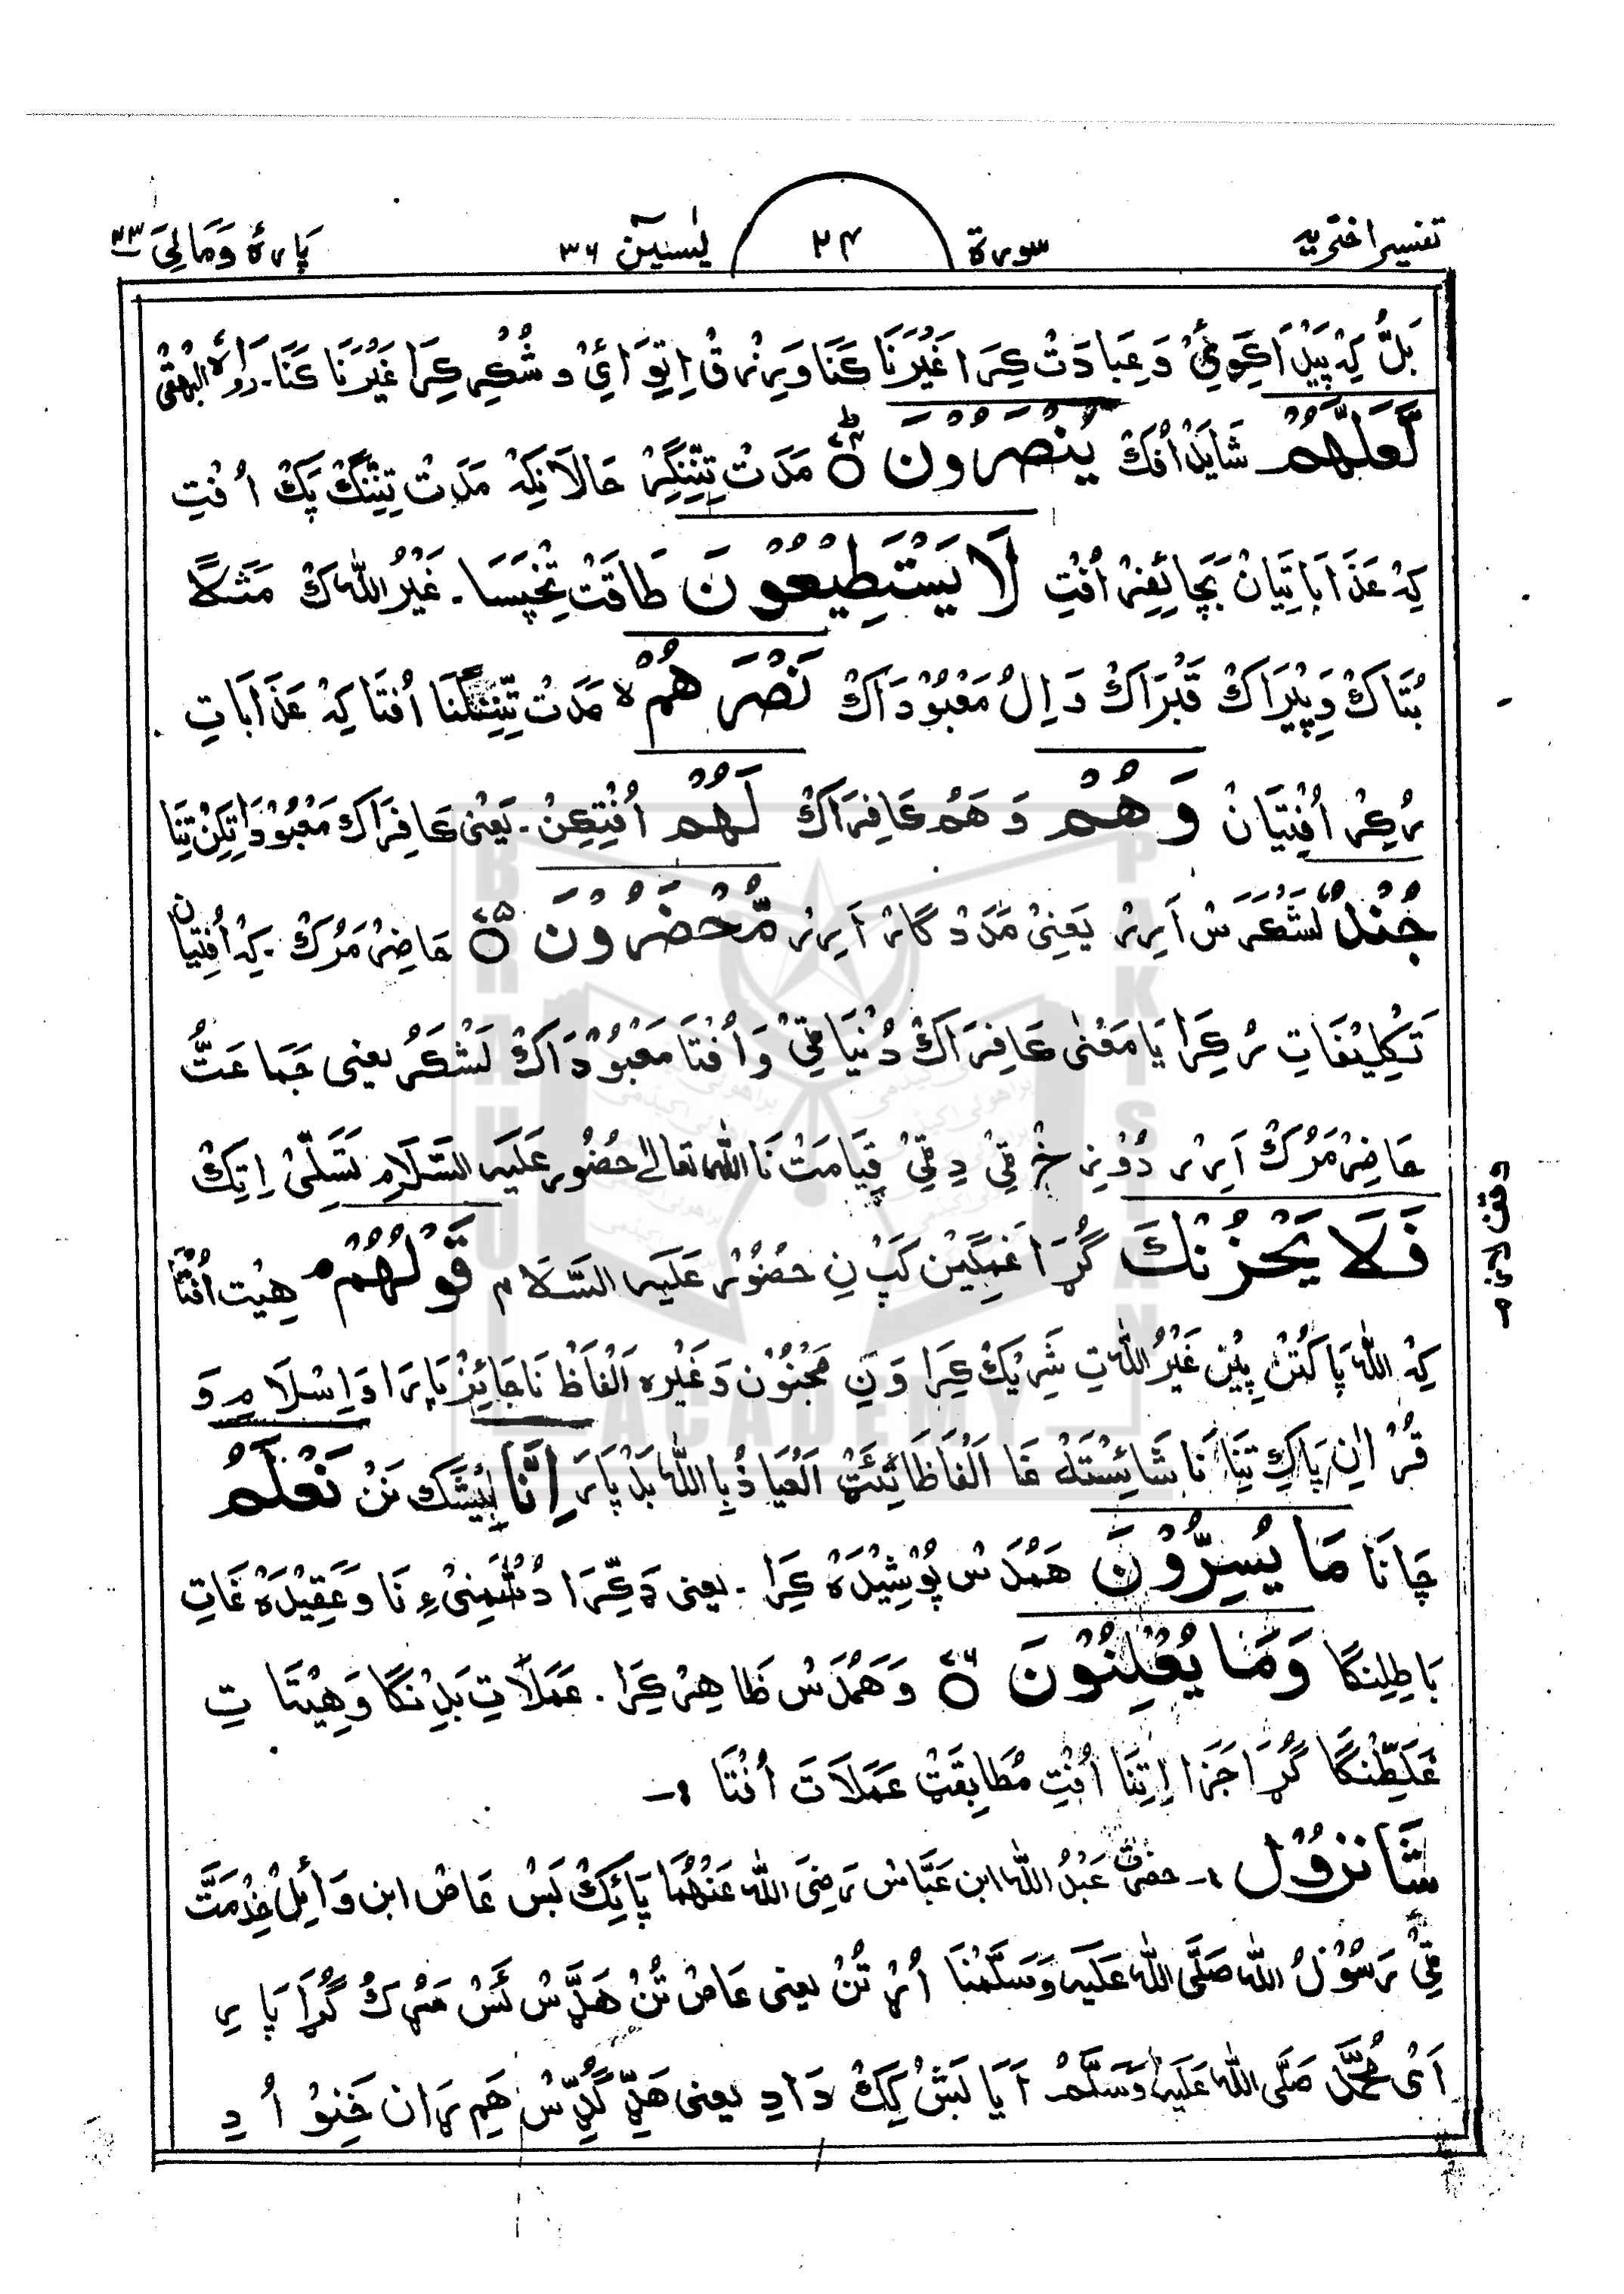 تفسیر اختریه
سورة
۲۴
یٰسین ۳۶
پارهٔ وَمَالِیَ ۲۳
بَلُّ کِہْ پَیْدَا کِوٖئِیْ وَ عِبَادَتْ کِرَا غَیْرَنَا کَنَا وَ رِزْق اِتِوٖائِیْ و شُکْر کِرَا غَیْرَنَا کَنَا۔ رَوَاہُ البیہقی
لَّعَلَّهُمْ شَایَدْ اُفْکْ یُنْصَرُوْنَ ۝۷۴ مَدَتْ تِنِنْگِرْ حَالَانِکِہْ مَدَتْ تِنِنْگْ پَکْ اُفْتِ
کِہْ عَذَابَاتِیَانْ بَچَائِفِرْ اُفْتِ لَا یَسْتَطِیْعُوْنَ طَاقَتْ تَخْپَسَا۔ غَیْرُ اللّٰہ کْ مَثَلًا
بُتَّاکْ وَ پِیْرَاکْ قَبْرَاکْ دَ اِلْ مَعْبُوْدَاکْ نَصْرَهُمْ ۙ مَدَتْ تِنِنْگْنَا اُفْتَا کِہْ عَذَابَاتِ
مُرکِرْ اُفْتِیَانْ وَهُمْ وَ هَمْ کَافِرَاکْ لَهُمْ اُفْتِکِنْ۔ یَعْنیْ کَافِرَاکْ مَعْبُوْدَاتِکِنْ تِنَا
جُنْدٌ لَشْکَرَسْ اَرِرْ یَعْنِیْ مَدَدْ گَارْ اَرِرْ مُّحْضَرُوْنَ ۝۷۵ حَاضِرْ مَرُکْ۔ کِہْ اُفْتِیَانْ
تَکْلِیْفَاتِ مُرکِرَا یَا مَعْنٰی کَافِرَاکْ دُنْیَا ٹِیْ وَ اُفْتَا مَعْبُوْدَاکْ لَشْکَرْ یعنی جَمَاعَتْ
حَاضِرْ مَرُکْ اَرِرْ دُوْزَخْ ٹِیْ دِ ٹِیْ قِیَامَتْ نَا اللّٰہ تَعَالٰے حُضُوْر عَلَیہِ السَّلَامِ تَسَلّیْ اِتِکْ
فَلَا یَحْزُنْكَ گُڑَا غَمِگِیْن کَپْ نِ حُضُوْرْ عَلَیہِ السَّلَام قَوْلُهُمْ ۘ هِیْت اُفْتَا
کِہْ اللّٰہ پَاکَتُنْ پِیْن غَیْرُ اللّٰہ تِ شَرِیْکْ کِرَا وَ نِ مَجْنُوْن وَ غَیْرہ اَلْفَاظْ نَاجَائِزْ پَارَا وَ اِسْلَامِ وَ
قُرْاٰنِ پَاکِ تِنَا نَا شَائِسْتَہْ غَا اَلْفَاظَاتِئَتْ اَلْعِیَاذُ بِا اللّٰہ بَدْ پَارَ اِنَّا بِیْشَّکْ نَنْ نَعْلَمُ
چَانَا مَا یُسِرُّوْنَ هَمْدَسْ پُوْشِیْدَہْ کِرَا۔ یعنی ذَکِّرَا دُشْمَنِیْ ءِ نَا وَ عَقِیْدَہْ غَاتِ
بَاطِلِنْکَا وَمَا یُعْلِنُوْنَ ۝۷۶ وَ هَمْدَسْ ظَاهِرْ کِرَا۔ عَمَلَاتِ بَدِنْکَا وَ هِیْتَاتِ
غَلَطِّنْکَا گُڑَا جَزَا اِتِنَا اُفْتِ مُطَابِقَتْ عَمَلَاتَ اُفْتَا ۔:
شَانِ نزول :۔ حضرت عَبْدُ اللّٰہ ابن عَبَّاسْ رَضِیَ اللّٰہُ عَنْهُمَا پَائِکْ بَسْ عَاصْ ابن وَائِلْ خِدْمَتْ
ٹِیْ رَسُوْلُ اللّٰہ صَلَّی اللّٰہُ عَلَیہِ وَسَلَّمْنَا اُڑتُنْ یعنی عَاصْ تُنْ هَڈَّسْ ئَسْ مَهْرکْ گُڑَا پَارِ
اَیْ مُحَمَّدْ صَلَّی اللّٰہُ عَلَیہِ وَسَلَّمْ اٰیَا بَشْ کِکْ دَادِ یعنی هَڈِّ گُڈِّسْ هَم رَان خَنِوْ اُدِ
وقف لازم
BRAHUI
ACADEMY
PAKISTAN